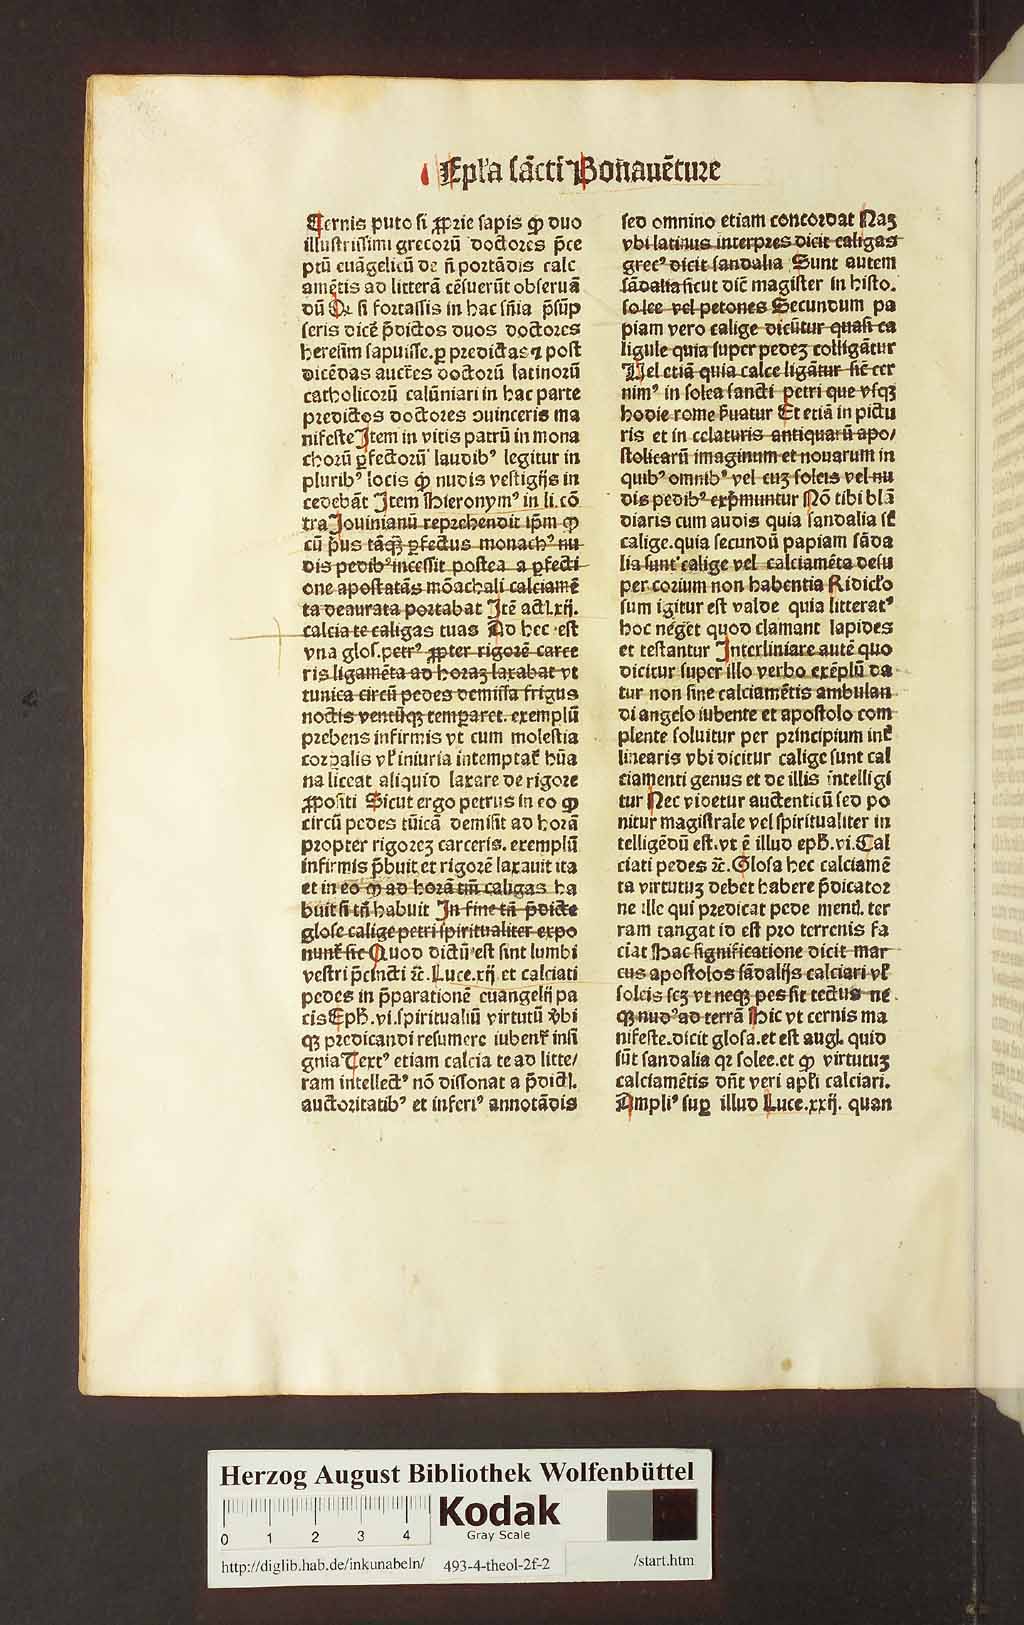 Epl'a sācti Bonauēture
Cernis puto si ꝓprie sapis ꝙ duo
illustrissimi grecorū doctores p̄ce
ptū euāgelicū de ñ portādis calc
amētis ad litterā cēsuerūt obseruā
dū Qꝛ si fortassis in hac sñia p̄sūp
seris dicē p̄dictos duos doctores
heresim sapuisse.ꝑ predictas ⁊ post
dicēdas auctēs doctorū latinorū
catholicorū calūniari in hac parte
predictos doctores ↄuinceris ma
nifeste Item in vitis patrū in mona
chorū ꝑfectorū laudibꝰ legitur in
pluribꝰ locis ꝙ nudis vestigijs in
cedebāt Item Hieronymꝰ in li. cō
tra Iouinianū reprehendit ip̄m ꝙ
cū p̄us tāꝗ̄ ꝑfectus monachꝰ nu
dis pedibꝰ incessit postea a ꝑfecti
one apostatās mōachali calciamē
ta deaurata portabat Itē act.xij.
calcia te caligas tuas Ad hec est
vna glos.petrꝰ ꝓpter rigorē carce
ris ligamēta ad horaꝫ laxabat vt
tunica circū pedes demissa frigus
noctis ventūqꝫ temꝑaret. exemplū
prebens infirmis vt cum molestia
corꝑalis vl' iniuria intemptat' hūa
na liceat aliquid laxare de rigore
ꝓpositi Sicut ergo petrus in eo ꝙ
circū pedes tūicā demisit ad horā
propter rigoreꝫ carceris. exemplū
infirmis p̄buit et rigorē laxauit ita
et in eo ꝙ ad horā tm̄ caligas ha
buit si tñ habuit In fine tñ p̄dicte
glose calige petri spiritualiter expo
nunt' sic Quod dictū est sint lumbi
vestri p̄cincti ⁊c̄. Luce.xij. et calciati
pedes in p̄parationē euangelij pa
cis Eph̄.vi.spiritualiū virtutū v̄bi
qꝫ predicandi resumere iubent' insi
gnia Textꝰ etiam calcia te ad litte/
ram intellectꝰ nō dissonat a p̄dict.
auctoritatibꝰ et inferiꝰ annotādis
sed omnino etiam concordat Naꝫ
vbi latinus interpres dicit caligas
grecꝰ dicit sandalia Sunt autem
sādalia sicut dic̄ magister in histo.
solee vel petones Secundum pa
piam vero calige dicūtur quasi ca
ligule quia super pedeꝫ colligātur
Uel etiā quia calce ligātur sic̄ cer
nimꝰ in solea sancti petri que vsqꝫ
hodie rome ẜuatur Et etiā in pictu
ris et in celaturis antiquarū apo/
stolicarū imaginum et nouarum in
quibꝰ omnibꝰ vel cuꝫ soleis vel nu
dis pedibꝰ exp̄muntur Nō tibi blā
diaris cum audis quia sandalia st̄
calige.quia secundū papiam sāda
lia sunt calige vel calciamēta desu
per corium non habentia Ridicl'o
sum igitur est valde quia litteratꝰ
hoc neget quod clamant lapides
et testantur Interliniare autē quo
dicitur super illo verbo exēplū da
tur non sine calciamētis ambulan
di angelo iubente et apostolo com
plente soluitur per principium int'
linearis vbi dicitur calige sunt cal
ciamenti genus et de illis intelligi
tur Nec videtur auctenticū sed po
nitur magistrale vel spiritualiter in
telligēdū est.vt ē illud eph̄.vi.Cal
ciati pedes ⁊c̄. Glosa hec calciamē
ta virtutuꝫ debet habere p̄dicator
ne ille qui predicat pede ment. ter
ram tangat id est pro terrenis fa
ciat Hac significatione dicit mar
cus apostolos sādalijs calciari vl'
soleis scꝫ vt neqꝫ pes sit tectus ne
qꝫ nudꝰ ad terrā Hic vt cernis ma
nifeste.dicit glosa.et est augl. quid
sūt sandalia qꝫ solee.et ꝙ virtutuꝫ
calciamētis dn̄t veri apl'i calciari.
Ampliꝰ suꝑ illud Luce.xxij. quan
Herzog August Bibliothek Wolfenbüttel
0 1 2 3 4
Kodak
Gray Scale
http://diglib.hab.de/inkunabeln/ 493-4-theol-2f-2 /start.htm